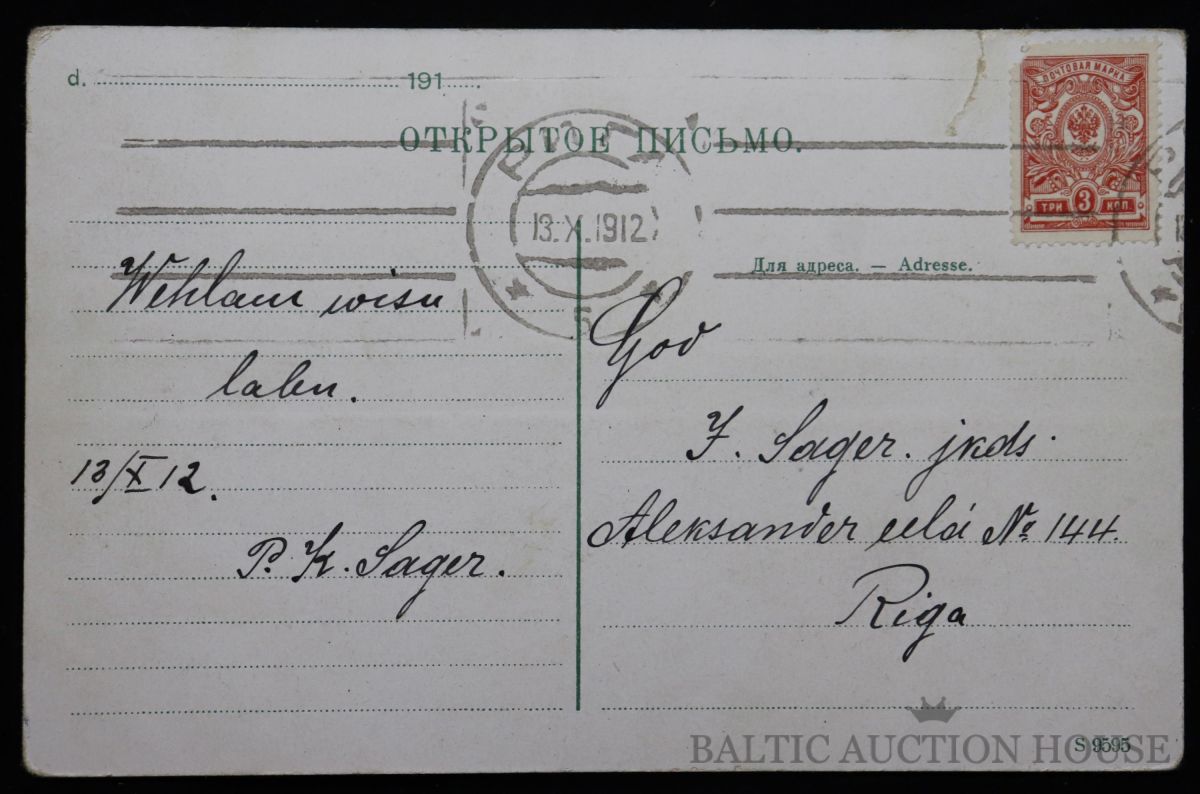 d. 191 .
ОТКРЫТОЕ ПИСЬМО.
ПОЧТОВАЯ МАРКА
ТРИ 3 КОП.
РИГА
13.X.1912
5
Для адреса. — Adresse.
Wehlam wisu
labu.
13/X 12.
P. K. Sager.
God
J. Sager. jkds.
Aleksander eelá № 144.
Riga
S 9595
BALTIC AUCTION HOUSE